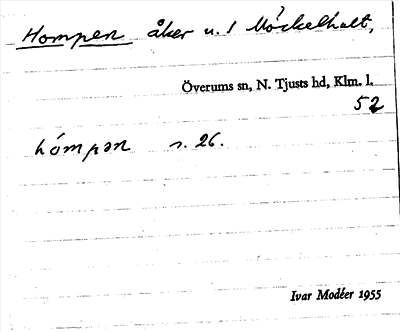 Hompen åker u. 1 Möckelhult,
Överums sn, N. Tjusts hd, Klm. l.
52
hómpən s. 26.
Ivar Modéer 1955